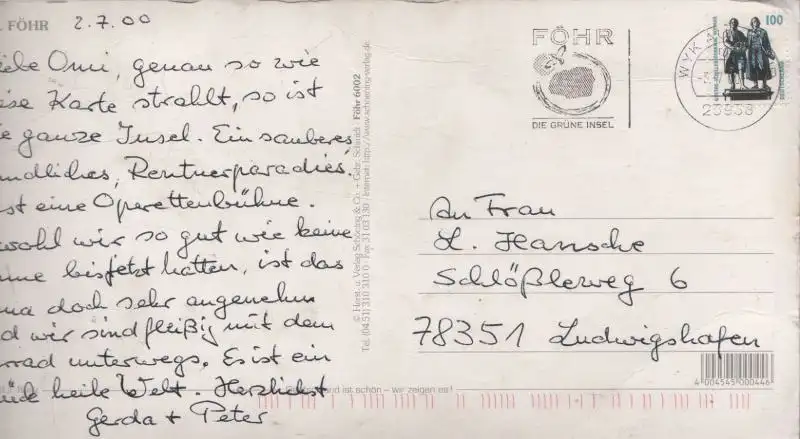 . FÖHR
2.7.00
ebe Omi, genau so wie
ese Karte strahlt, so ist
e ganze Insel. Ein sauberes
ndliches, Rentnerparadies.
st eine Operettenbühne.
wohl wir so gut wie keine
nne bisjetzt hatten, ist das
ma doch sehr angenehm
d wir sind fleißig mit dem
rrad unterwegs. Es ist ein
ück heile Welt. Herzlichst
Gerda + Peter
© Horst u. Verlag Schöning & Co. + Gebr. Schmidt · Föhr 6002
Tel. (04 51) 310 310 · Fax 31 03 130 / Internet: http://www.schoening-verlag.de
and ist schön – wir zeigen es!
FÖHR
DIE GRÜNE INSEL
WYK
25938
100
An Frau
H. Hansche
Schlößleweg 6
78351 Ludwigshafen
4 004545 000446